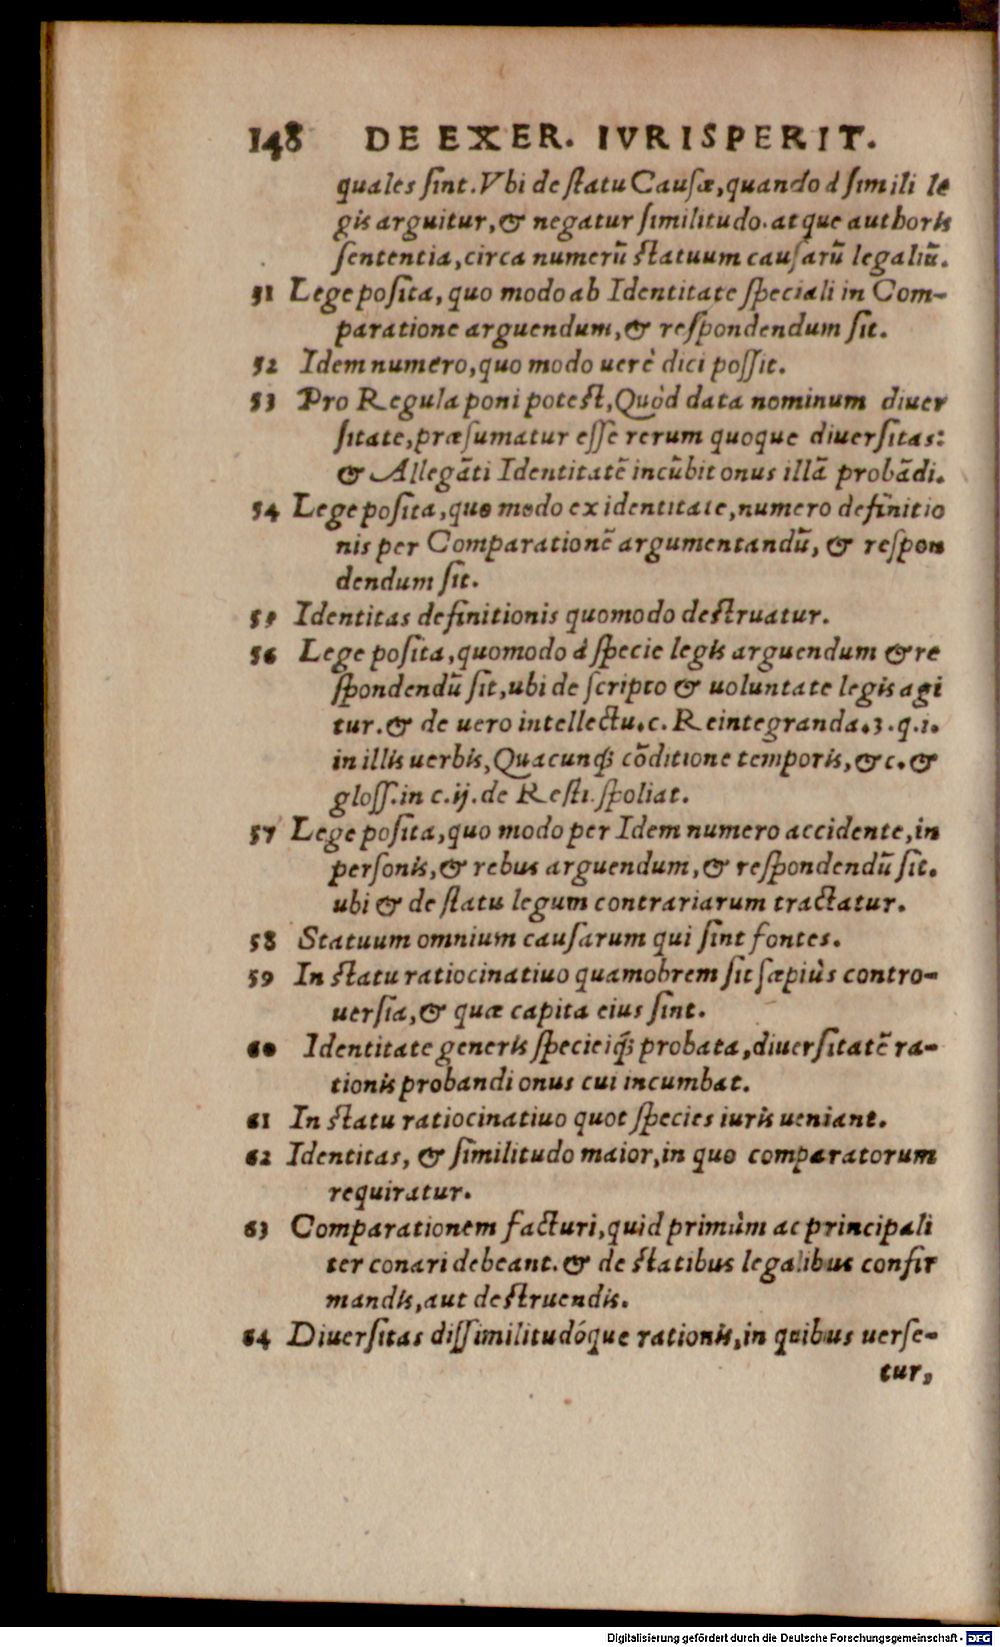 148 DE EXER. IVRISPERIT.
quales ſint. Vbi de ſtatu Cauſæ, quando à ſimili le
gis arguitur, & negatur ſimilitudo. atque authoris
ſententia, circa numerū ſtatuum cauſarū legaliū.
51 Lege poſita, quo modo ab Identitate ſpeciali in Com-
paratione arguendum, & reſpondendum ſit.
52 Idem numero, quo modo uerè dici poſſit.
53 Pro Regula poni poteſt, Quòd data nominum diuer
ſitate, præſumatur eſſe rerum quoque diuerſitas:
& Allegāti Identitatē incūbit onus illā probādi.
54 Lege poſita, quo modo ex identitate, numero definitio
nis per Comparationē argumentandū, & reſpon
dendum ſit.
55 Identitas definitionis quomodo deſtruatur.
56 Lege poſita, quomodo à ſpecie legis arguendum & re
ſpondendū ſit, ubi de ſcripto & uoluntate legis agi
tur. & de uero intellectu. c. Reintegranda. 3. q. 1.
in illis uerbis, Quacunq; cōditione temporis, &c. &
gloſſ. in c. ij. de Reſti. ſpoliat.
57 Lege poſita, quo modo per Idem numero accidente, in
perſonis, & rebus arguendum, & reſpondendū ſit.
ubi & de ſtatu legum contrariarum tractatur.
58 Statuum omnium cauſarum qui ſint fontes.
59 In ſtatu ratiocinatiuo quamobrem ſit ſæpiùs contro-
uerſia, & quæ capita eius ſint.
60 Identitate generis ſpecieiq; probata, diuerſitatē ra-
tionis probandi onus cui incumbat.
61 In ſtatu ratiocinatiuo quot ſpecies iuris ueniant.
62 Identitas, & ſimilitudo maior, in quo comparatorum
requiratur.
63 Comparationem facturi, quid primùm ac principali
ter conari debeant. & de ſtatibus legalibus confir
mandis, aut deſtruendis.
64 Diuerſitas diſſimilitudóque rationis, in quibus uerſe-
tur,
Digitalisierung gefördert durch die Deutsche Forschungsgemeinschaft - DFG